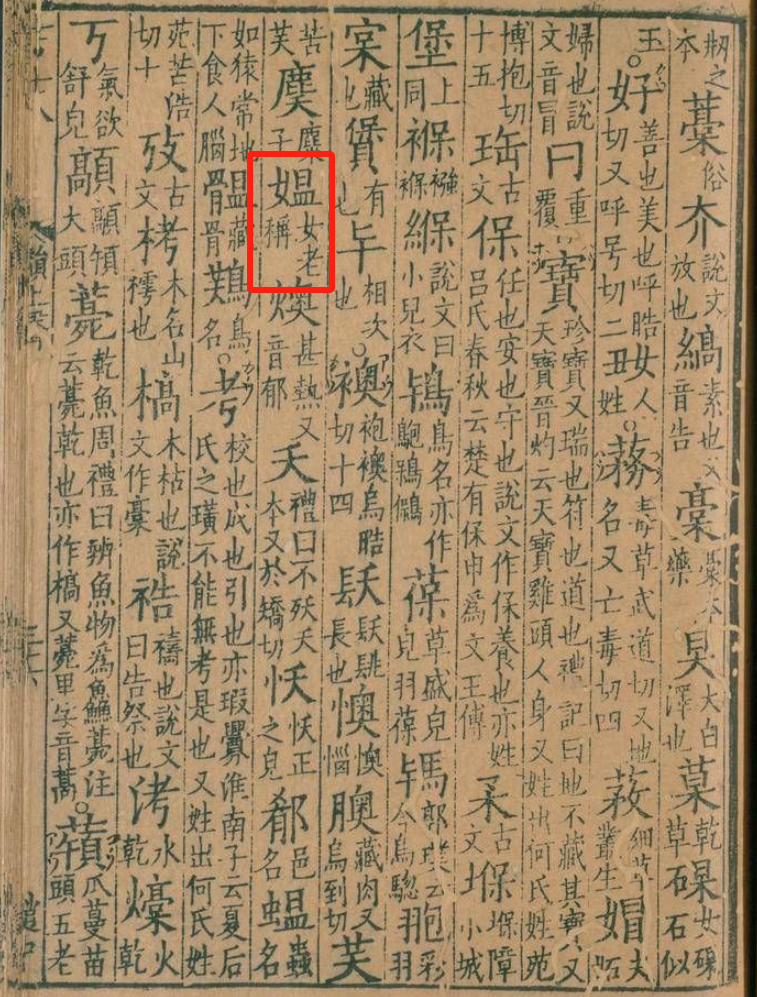 㓡之夲藁俗夰說文放也縞素也又音告槀槀本藥昊大白澤也菒乾草女石似
玉好善也美也呼晧切又呼号切二女人姓蓩毒草武道切又地名又亡毒切四細草叢生媢夫妬
婦也說文音冒冃重覆寶珍寶又瑞也符也道也禮記曰地不藏其寶又天寶晉灼云天寶雞頭人身又姓出何氏姓苑
博抱切十五珤古文保任也安也守也說文作保養也亦姓呂氏春秋云楚有保申爲文王傅古文堢堢障小城
堡上同褓襁褓緥說文曰小兒衣鴇鳥名亦作葆草盛皃羽葆郭璞云今烏驄彩羽
藏也有也㐄相次也襖袍襖烏晧切十四镺長也懊懊惱藏肉又烏到切芺
苦芺麌麋子媼女老稱燠甚熱又音郁夭禮曰不殀夭本又於矯切之皃邑名蝹蟲名
如猿常地下食人腦藏骨鳥名考校也成也引也亦瑕釁淮南子云夏后氏之璜不能無考是也又姓出何氏姓
苑苦浩切十攷古文栲木名山樗也槁木枯也說文作槀祰禱也說文曰告祭也洘水乾燺火乾
丂氣欲舒皃大頭薧乾魚周禮曰辨魚物爲鱻薧注云薧乾也亦作槁又薧里字音蒿瓜蔓苗頭五老